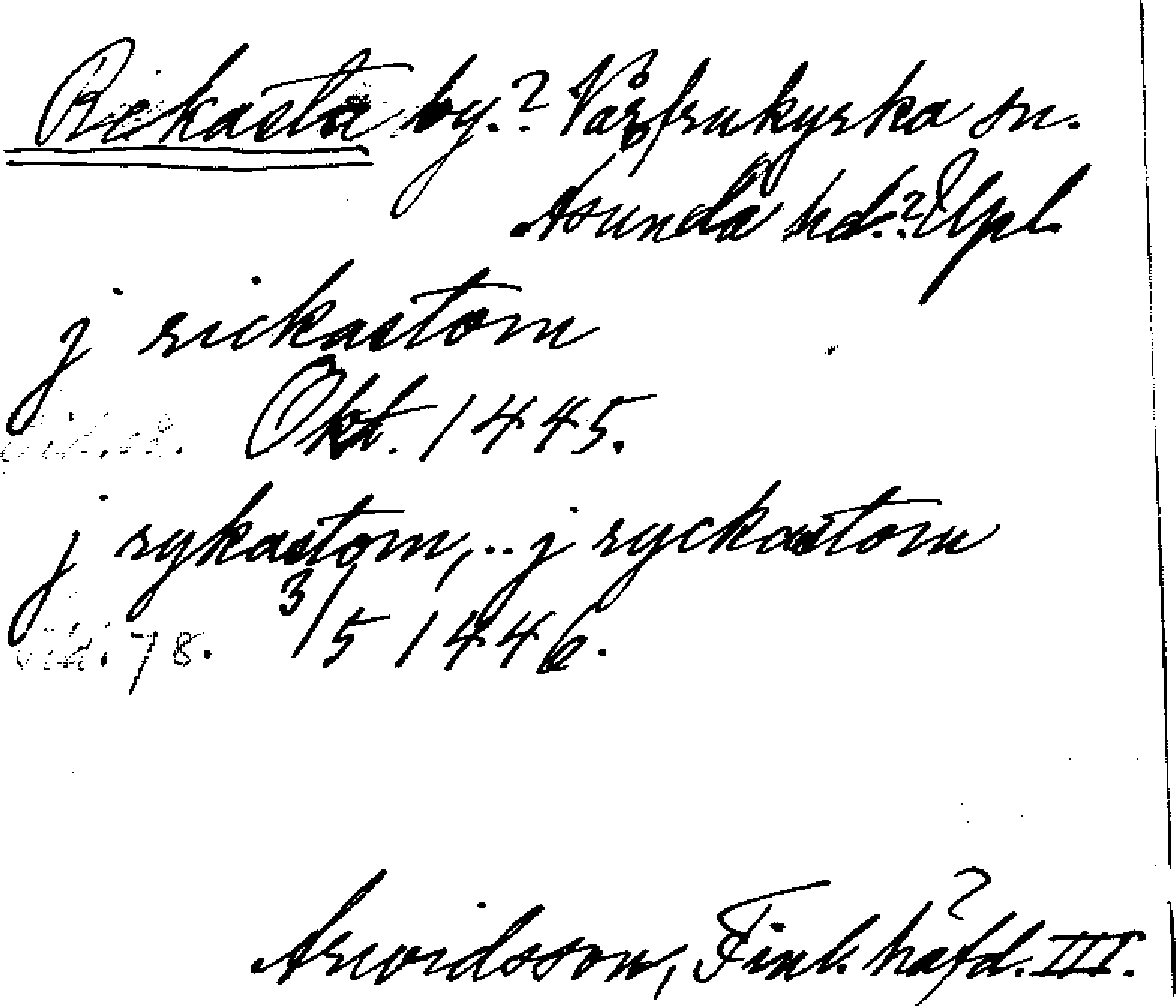 Rekasta by.? Vårfrukyrka sn.
Åsunda hd.? Upl.
j rickastom
Okt. 1445.
j rykastom, .. j ryckastom
sid. 78. 3/5 1446.
Arwidsson, Finl. häfd. III.